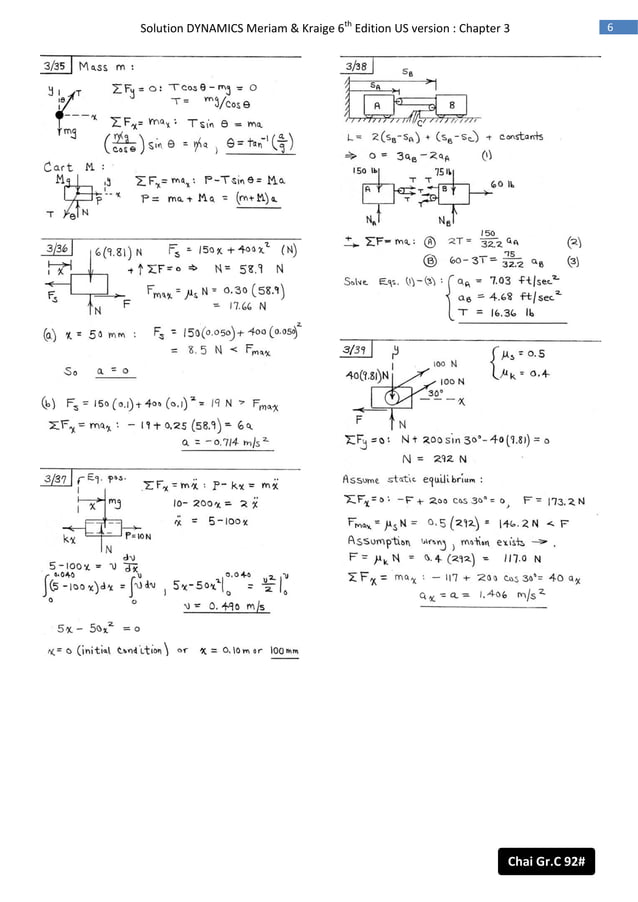 Solution DYNAMICS Meriam & Kraige 6th Edition US version : Chapter 3
6
3/35 Mass m :
y
θ T
x
mg
ΣFy = 0: T cos θ - mg = 0
T = mg/cos θ
ΣFx = max: T sin θ = ma
(mg/cos θ) sin θ = ma , θ = tan⁻¹(a/g)
Cart M :
Mg y
P x
T θ N
ΣFx = max: P-T sin θ = Ma
P = ma + Ma = (m+M)a
3/36
x
6(9.81) N Fs = 150x + 400x² (N)
+↑ΣF=0 ⇒ N = 58.9 N
Fs F
N
Fmax = μs N = 0.30 (58.9)
= 17.66 N
(a) x = 50 mm : Fs = 150(0.050) + 400(0.050)²
= 8.5 N < Fmax
So a = 0
(b) Fs = 150(0.1) + 400(0.1)² = 19 N > Fmax
ΣFx = max : -19 + 0.25 (58.9) = 6a
a = -0.714 m/s²
3/37 Eq. pos.
x mg
kx P=10N
N
ΣFx = mẍ : P- kx = mẍ
10- 200x = 2ẍ
ẍ = 5-100x
5-100x = v dv/dx
∫₀^0.040 (5-100x)dx = ∫₀^v vdv , 5x-50x²|₀^0.040 = v²/2|₀^v
v = 0.490 m/s
5x - 50x² = 0
x = 0 (initial condition) or x = 0.10 m or 100mm
3/38
sB
sA
A B
C
L = 2(sB-sA) + (sB-sC) + constants
⇒ 0 = 3aB - 2aA (1)
150 lb 75 lb
A T T B 60 lb
T T
NA NB
+→ ΣF=ma: Ⓐ 2T = 150/32.2 aA (2)
Ⓑ 60-3T = 75/32.2 aB (3)
Solve Eqs. (1)-(3) : { aA = 7.03 ft/sec²
aB = 4.68 ft/sec²
T = 16.36 lb
3/39
y
100 N
40(9.81)N
100 N
30°
x
F N
{ μs = 0.5
μk = 0.4
ΣFy=0: N + 200 sin 30° - 40(9.81) = 0
N = 292 N
Assume static equilibrium :
ΣFx=0: -F + 200 cos 30° = 0, F = 173.2 N
Fmax = μsN = 0.5 (292) = 146.2 N < F
Assumption wrong, motion exists →.
F = μk N = 0.4 (292) = 117.0 N
ΣFx = max : -117 + 200 cos 30° = 40 ax
ax = a = 1.406 m/s²
Chai Gr.C 92#